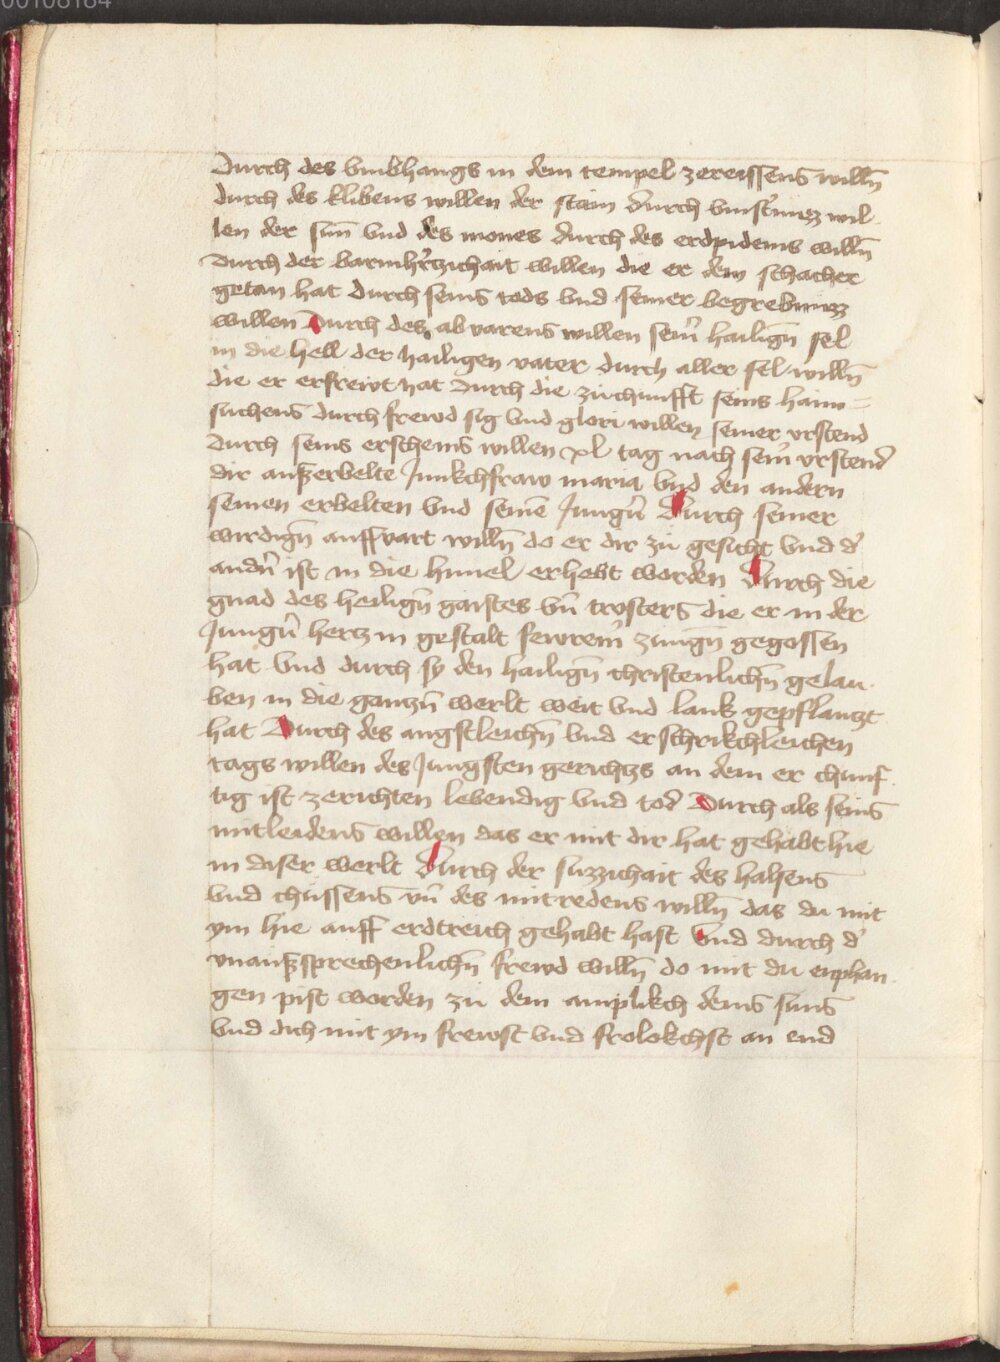 00108184
Durch des vmbhangs in dem tempel zereissens willn̄
durch des klibens willen der stain durch vinst'nuzz wil
len der sun̄ vnd des mones durch des erdpidems willn̄
Durch der barmh'rzichait willen die er dem schacher
getan hat durch seins tods vnd seiner begrebnuzz
willen Durch des abvarens willen sein' hailign̄ sel
in die hell der hailigen vater durch aller sel willn̄
die er erfreivt hat durch die zuchunfft seins haim=
suchens durch frewd sig vnd glori willen seiner vrstend
Durch seins erscheins willen xl tag nach sein' vrstend'
dir auserbelte Junkchfraw maria vnd den andern
seinen erbelten vnd seinē Jungn̄ Durch seiner
wirdign̄ auffvart willn̄ do er dir zu gesicht vnd d'
andn̄ ist in die himel erhebt worden Durch die
gnad des heilign̄ gaistes vn̄ trosters die er in der
Jungn̄ hertz in gestalt fewrein' zungn gegossen
hat vnd durch sy den hailign̄ christenlichn̄ gelau
ben in die ganczn̄ werlt weit vnd lank gepflanzt
hat Durch des angstleichn̄ vnd erschrikchleichen
tags willen des Jungsten gerichtzs an dem er chunf
tig ist zerichten lebendig vnd tod' Durch als seins
mitleidens willen das er mit dir hat gehabt hie
in diser werlt Durch der suzzichait des halsens
vnd chussens vn̄ des mitredens willn̄ das du mit
ym hie auff erdtreich gehabt hast Vnd durch d'
vnaussprechenlichn̄ frewd willn̄ do mit du enphan
gen pist worden zu dem anplikch deins suns
vnd dich mit ym frewst vnd frolokchst an end